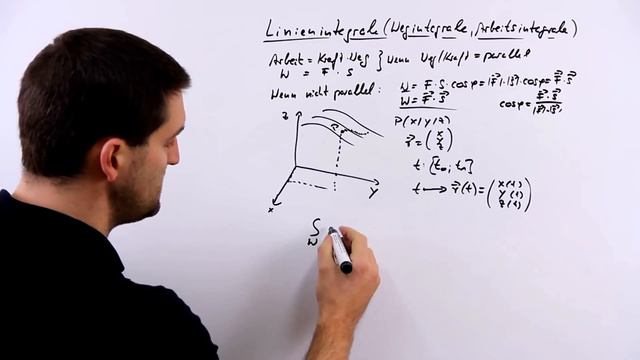 Linienintegrale (Wegintegrale, Arbeitsintegrale)
Arbeit = Kraft · Weg } wenn Weg/Kraft = parallel
W = F · S
Wenn nicht parallel: W = F · S · cos φ = |F⃗| · |S⃗| · cos φ = F⃗ · S⃗
W = F⃗ · S⃗
cos φ = F⃗ · S⃗ / |F⃗| · |S⃗|
z
P(x/y/z)
r⃗ = (x y z)
t: [t₀; tₙ]
t → r⃗(t) = (x(t) y(t) z(t))
y
x
∫
W